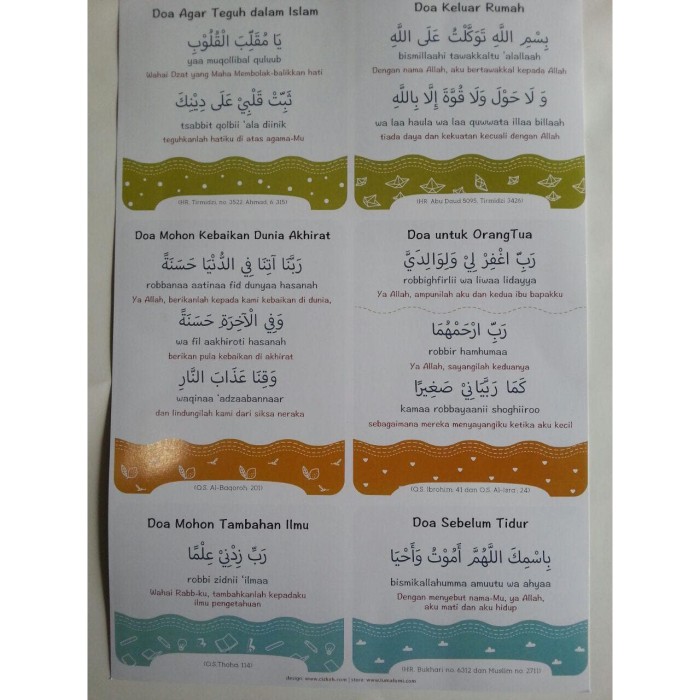 Doa Agar Teguh dalam Islam
يَا مُقَلِّبَ الْقُلُوْبِ
yaa muqollibal quluub
Wahai Dzat yang Maha Membolak-balikkan hati
ثَبِّتْ قَلْبِيْ عَلَى دِيْنِكَ
tsabbit qolbii 'ala diinik
teguhkanlah hatiku di atas agama-Mu
(HR. Tirmidzi no. 3522, Ahmad, 6, 315)
Doa Keluar Rumah
بِسْمِ اللَّهِ تَوَكَّلْتُ عَلَى اللَّهِ
bismillaahi tawakkaltu 'alallaah
Dengan nama Allah, aku bertawakkal kepada Allah
وَ لَا حَوْلَ وَلَا قُوَّةَ إِلَّا بِاللَّهِ
wa laa haula wa laa quwwata illaa billaah
tiada daya dan kekuatan kecuali dengan Allah
(HR. Abu Daud 5095, Tirmidzi 3426)
Doa Mohon Kebaikan Dunia Akhirat
رَبَّنَا آتِنَا فِي الدُّنْيَا حَسَنَةً
robbanaa aatinaa fid dunyaa hasanah
Ya Allah, berikanlah kepada kami kebaikan di dunia,
وَفِي الْآخِرَةِ حَسَنَةً
wa fil aakhiroti hasanah
berikan pula kebaikan di akhirat
وَقِنَا عَذَابَ النَّارِ
waqinaa 'adzaabannaar
dan lindungilah kami dari siksa neraka
(Q.S. Al-Baqoroh: 201)
Doa untuk OrangTua
رَبِّ اغْفِرْ لِيْ وَلِوَالِدَيَّ
robbighfirlii wa liwaa lidayya
Ya Allah, ampunilah aku dan kedua ibu bapakku
رَبِّ ارْحَمْهُمَا
robbir hamhumaa
Ya Allah, sayangilah keduanya
كَمَا رَبَّيَانِيْ صَغِيرًا
kamaa robbayaanii shoghiiroo
sebagaimana mereka menyayangiku ketika aku kecil
(Q.S. Ibrohim: 41 dan Q.S. Al-Isra': 24)
Doa Mohon Tambahan Ilmu
رَبِّ زِدْنِيْ عِلْمًا
robbi zidnii 'ilmaa
Wahai Rabb-ku, tambahkanlah kepadaku
ilmu pengetahuan
(Q.S Thoha: 114)
Doa Sebelum Tidur
بِاسْمِكَ اللَّهُمَّ أَمُوْتُ وَأَحْيَا
bismikallahumma amuutu wa ahyaa
Dengan menyebut nama-Mu, ya Allah,
aku mati dan aku hidup
(HR. Bukhari no. 6312 dan Muslim no 2711)